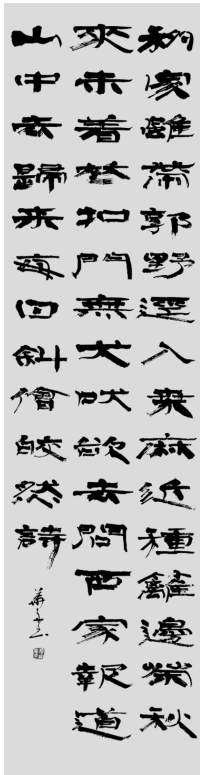 移家雖帶郭野逕入桑麻近種籬邊菊秋
來未着花扣門無犬吠欲去問西家報道
山中去歸來每日斜僧皎然詩